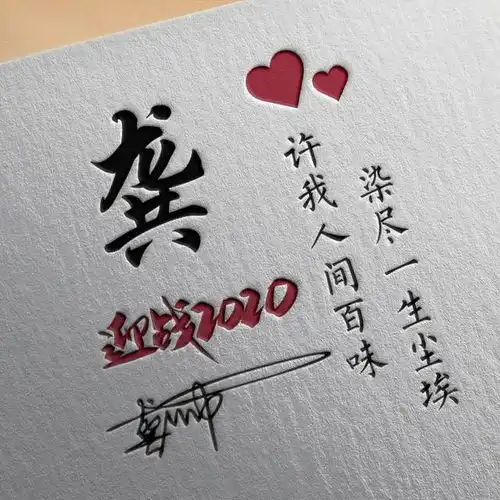 龚
迎战2020
许我人间百味
染尽一生尘埃